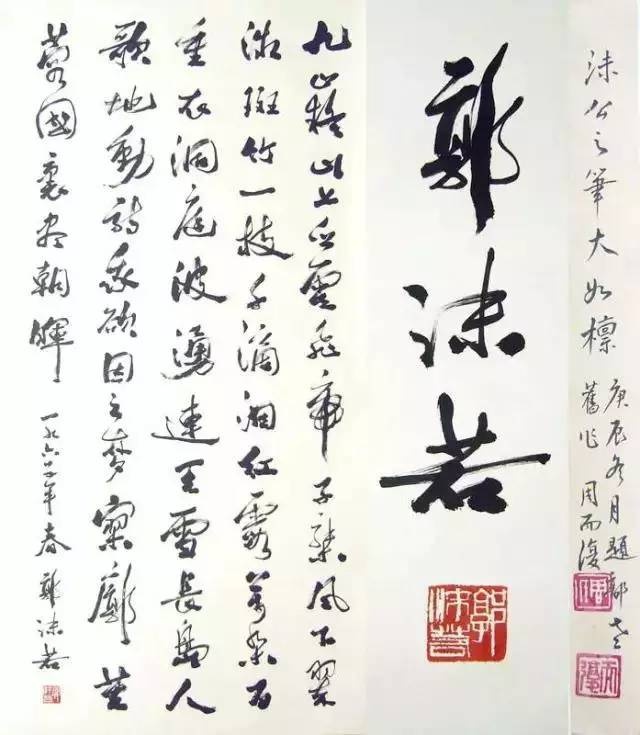 沫公之筆大如檁
庚辰冬月題郭老
舊作 周而復
郭沫若
郭沫若
九嶷山上白雲飛帝子乘風下翠
微斑竹一枝千滴淚紅霞萬朵百
重衣洞庭波湧連天雪長島人
歌地動詩我欲因之夢寥廓芙
蓉國裏盡朝暉 一九六 年春 郭沫若